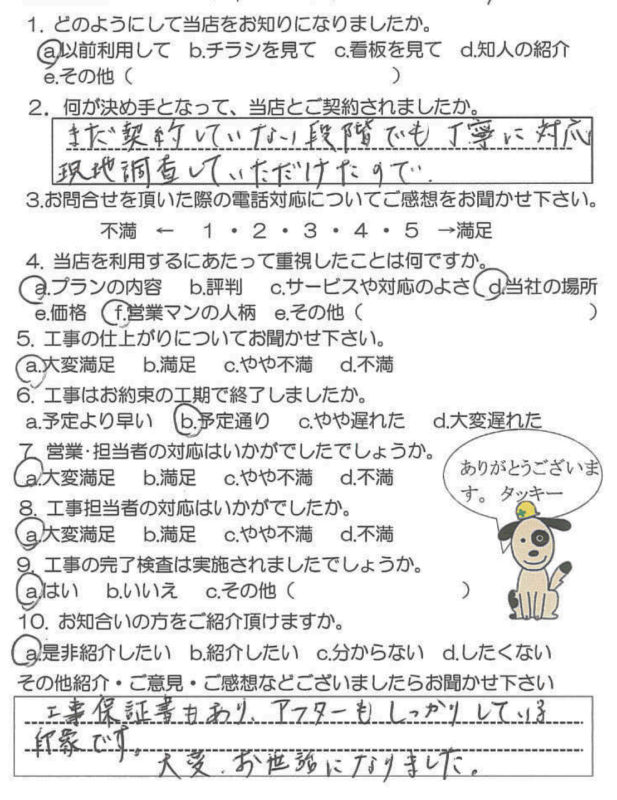 1. どのようにして当店をお知りになりましたか。
a.以前利用して b.チラシを見て c.看板を見て d.知人の紹介
e.その他（ ）
2. 何が決め手となって、当店とご契約されましたか。
まだ契約していない段階でも丁寧に対応
現地調査していただけたので.
3.お問合せを頂いた際の電話対応についてご感想をお聞かせ下さい。
不満 ← 1・2・3・4・5 →満足
4. 当店を利用するにあたって重視したことは何ですか。
a.プランの内容 b.評判 c.サービスや対応のよさ d.当社の場所
e.価格 f.営業マンの人柄 e.その他（ ）
5. 工事の仕上がりについてお聞かせ下さい。
a.大変満足 b.満足 c.やや不満 d.不満
6. 工事はお約束の工期で終了しましたか。
a.予定より早い b.予定通り c.やや遅れた d.大変遅れた
7. 営業・担当者の対応はいかがでしたでしょうか。
a.大変満足 b.満足 c.やや不満 d.不満
ありがとうございま
す。 タッキー
8. 工事担当者の対応はいかがでしたか。
a.大変満足 b.満足 c.やや不満 d.不満
9. 工事の完了検査は実施されましたでしょうか。
a.はい b.いいえ c.その他（ ）
10. お知合いの方をご紹介頂けますか。
a.是非紹介したい b.紹介したい c.分からない d.したくない
その他紹介・ご意見・ご感想などございましたらお聞かせ下さい
工事保証書もあり、アフターもしっかりしている
印象です。
大変、お世話になりました。